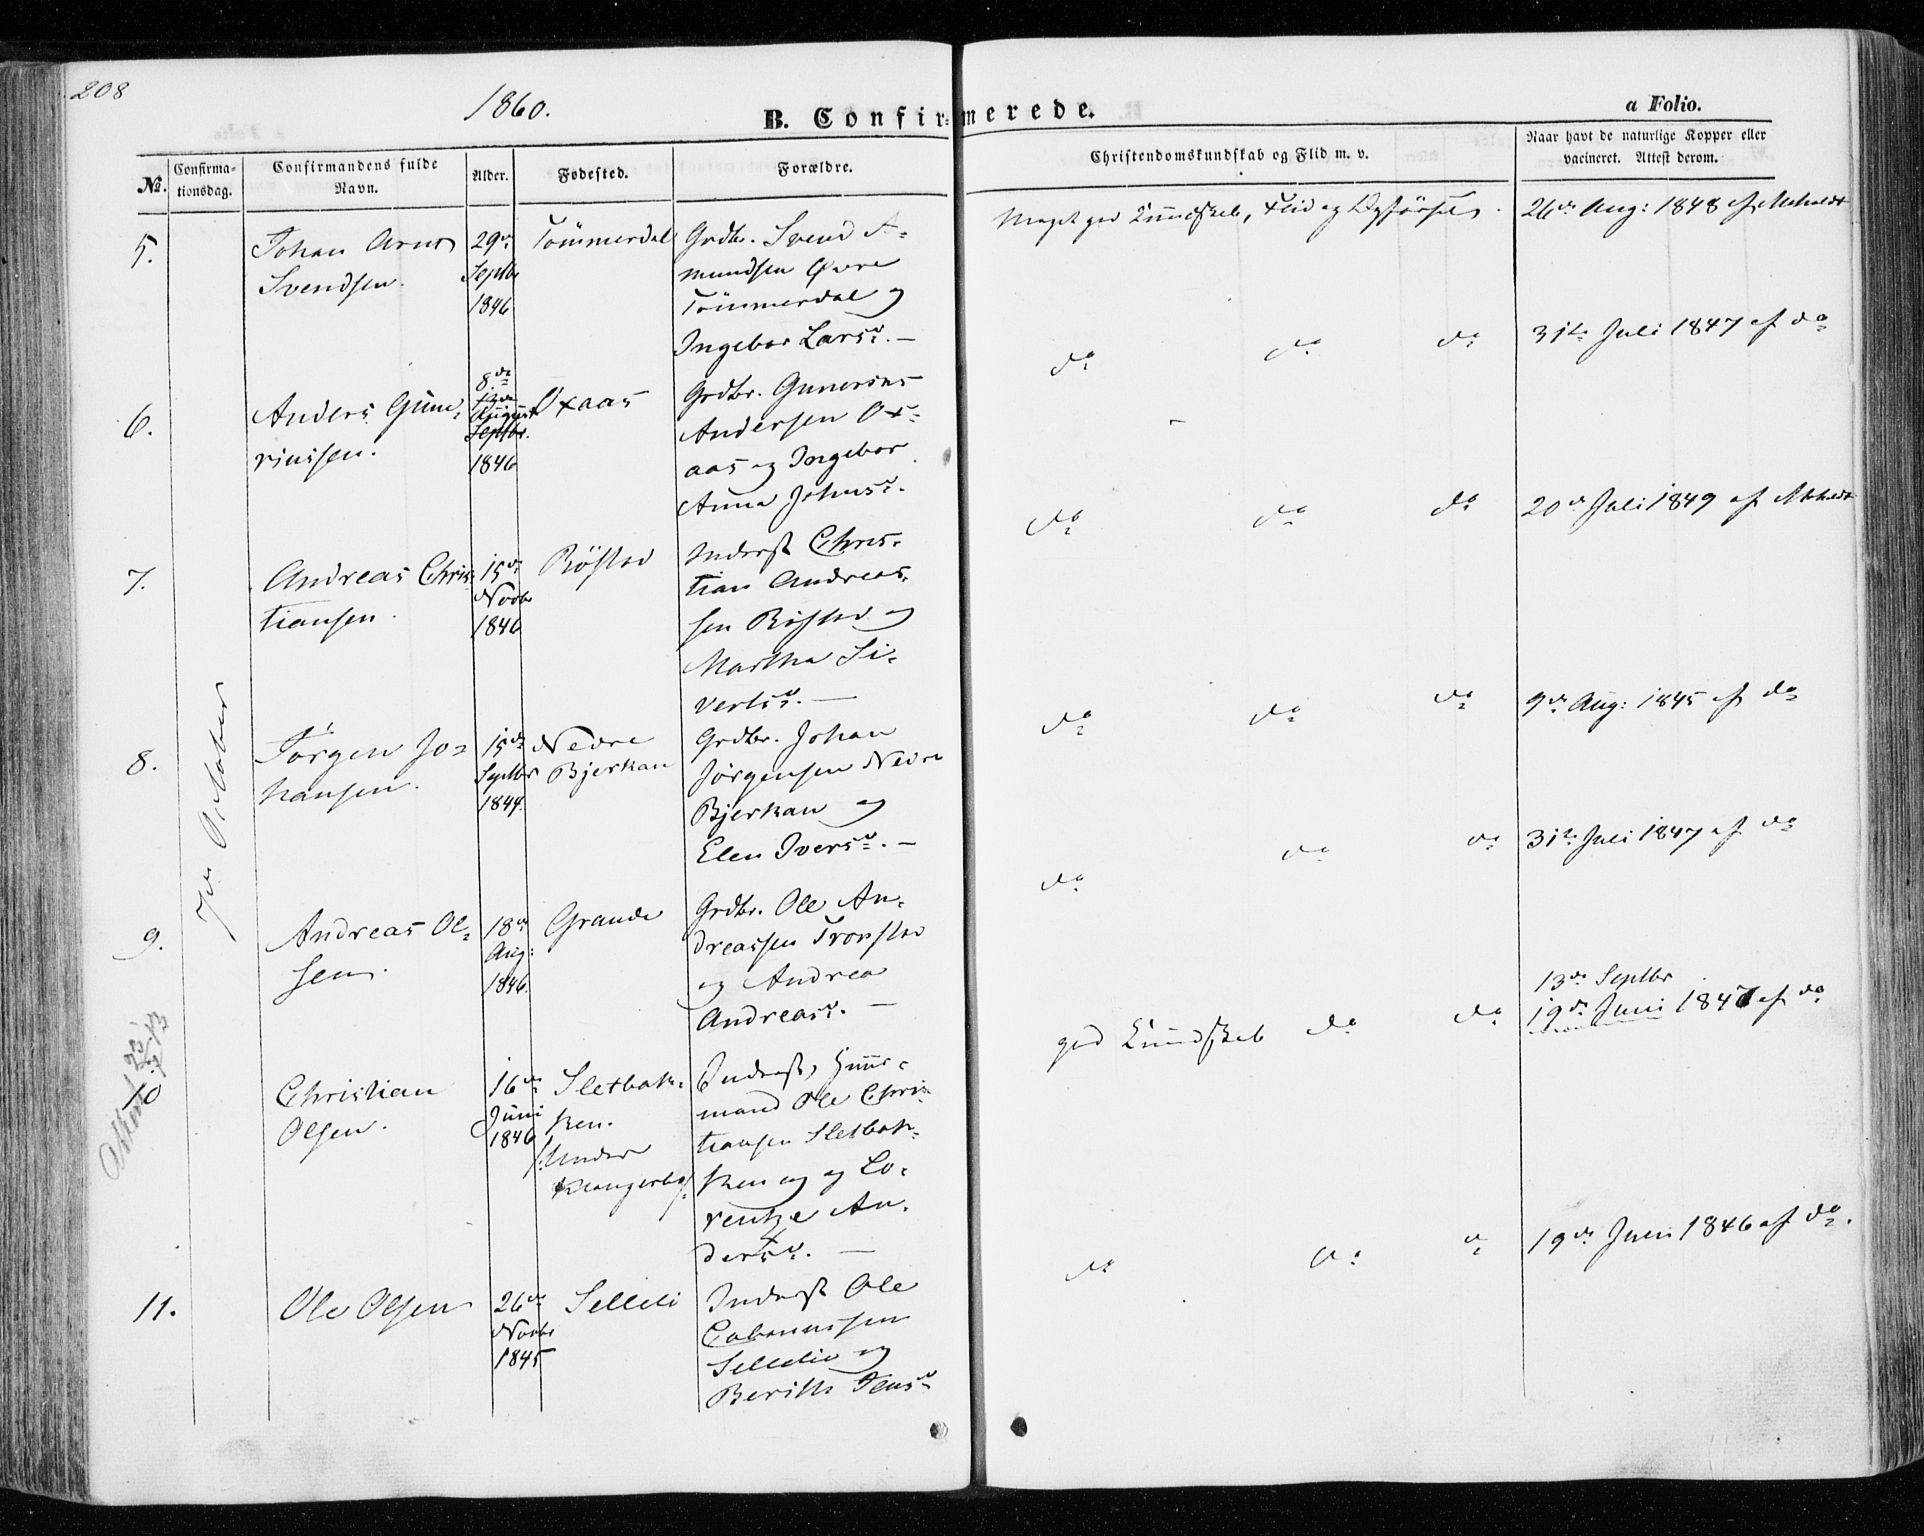 208
1860.
B. Confirmerede.
a Folio.
No.
Confirma-
tionsdag.
Confirmandens fulde
Navn.
Alder.
Fødested.
Forældre.
Christendomskundskab og Flid m. v.
Naar havt de naturlige Kopper eller
vacineret. Attest derom.
7de October
5.
Johan Arnt
Svendsen.
29de
Septbr
1846
Tömmerdal
Grdbr. Svend A-
mundsen Øvre
Tömmerdal og
Ingebor Larsdr. —
Meget god Kundskab, Flid og Opförsel.
26de Aug: 1848 af
6.
Anders Gune-
riussen.
8de
August
Septbr.
1846
Oxaas
Grdbr. Gunerius
Andersen Ox-
aas og Ingebor
Anna Johnsdr.
do do do
31te Juli 1847 af do
7.
Andreas Chris-
tiansen.
15de
Novbr
1846
Röstad
Inderst Chris-
tian Andreas-
sen Röstad og
Martha Si-
vertsdr. —
do do do
20de Juli 1849 af
8.
Jörgen Jo-
hansen.
15de
Septbr
1844.
Nedre
Bjerkan
Grdbr. Johan
Jörgensen Nedre
Bjerkan og
Elen Iversdr. —
do do do
9de Aug: 1845 af do
9.
Andreas Ol-
sen.
18de
Aug:
1846.
Grande
Grdbr. Ole An-
dreassen Tronstad
og Andrea
Andreasdr. —
do do do
31te Juli 1847 af do
10
Christian
Olsen.
16de
Juni
1846
Sletbak-
ken.
/:under
Inderst, Huus-
mand Ole Chris-
tiansen Sletbak-
ken og og Lo-
rentze An-
dersdr. —
god Kundskab do do
13de Septbr
19de Juni 1847 af do
11.
Ole Olsen
26de
Novbr
1845
Selleli
Inderst Ole
Sellelie og
Berith Jensdr
do do do
19de Juni 1846 af do.